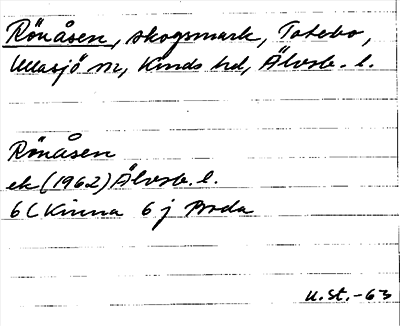 Rönåsen, skogsmark, Totebo,
Ullasjö sn, Kinds hd, Älvsb. l.
Rönåsen
ek (1962) Älvsb. l.
6 C Kinna 6 j Boda
U.St.-63